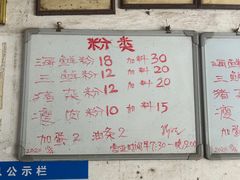 粉类
海鲜粉 18 加料 30
三鲜粉 12 加料 20
猪杂粉 12 加料 20
瘦肉粉 10 加料 15
加蛋 2 油条 2
营业时间早7:30-晚8:00
公示栏